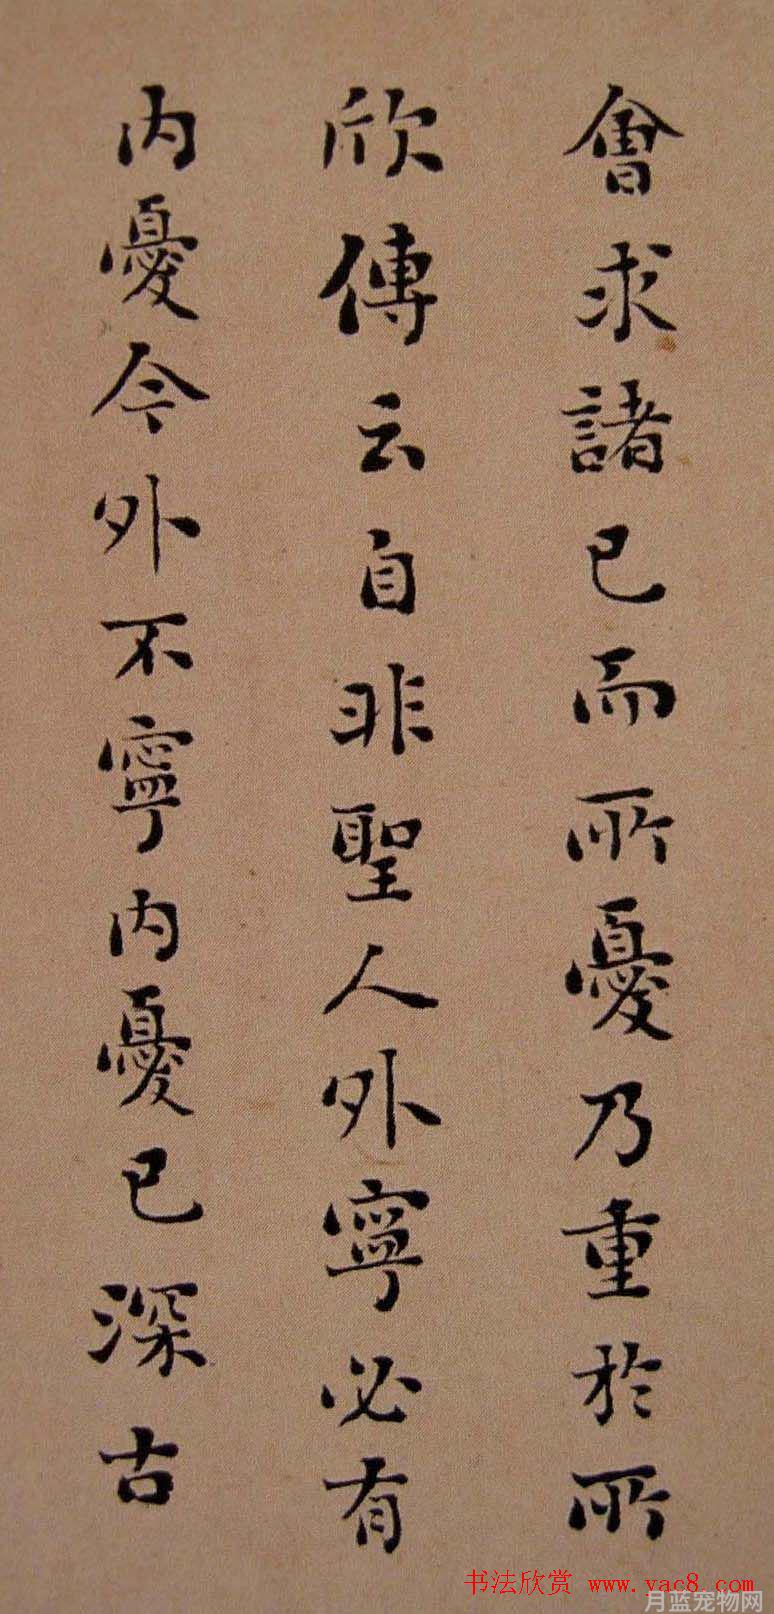 會求諸己而所憂乃重於所
欣傳云自非聖人外寧必有
内憂今外不寧内憂已深古
书法欣赏 www.yac8.com
月蓝宠物网